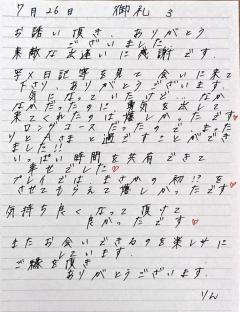 7月26日 御礼 3
お誘い頂き、ありがとう
ございました
素敵な出逢いに感謝です.
写メ日記等を見て会いに来て
下さり、ありがとうございます.
気になっていたけど… なか
なかだったのに 勇気を出して
来てくれたのは嬉しかったです♡
ロングコースだったので まった
りとんさまと過ごすことができ
ました!!
いっぱい時間を共有できて
幸せでした♡
プレイでは、まさかの初!?を
させてもらえて嬉しかったです♡
気持ち良くなって頂けて
良かったです♡
またお会いできるのを楽しみに
しています.
ご縁を頂き
ありがとうございます.
りん